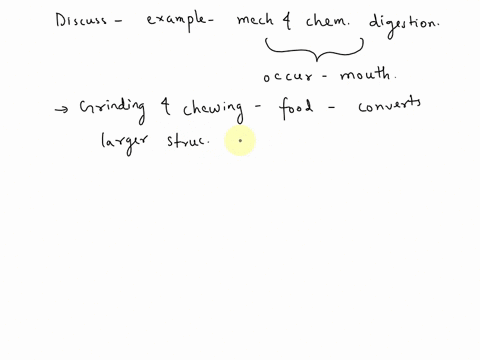 Discuss - example - mech & chem. digestion.
occur - mouth.
→ Grinding & chewing - food - converts
larger struc.